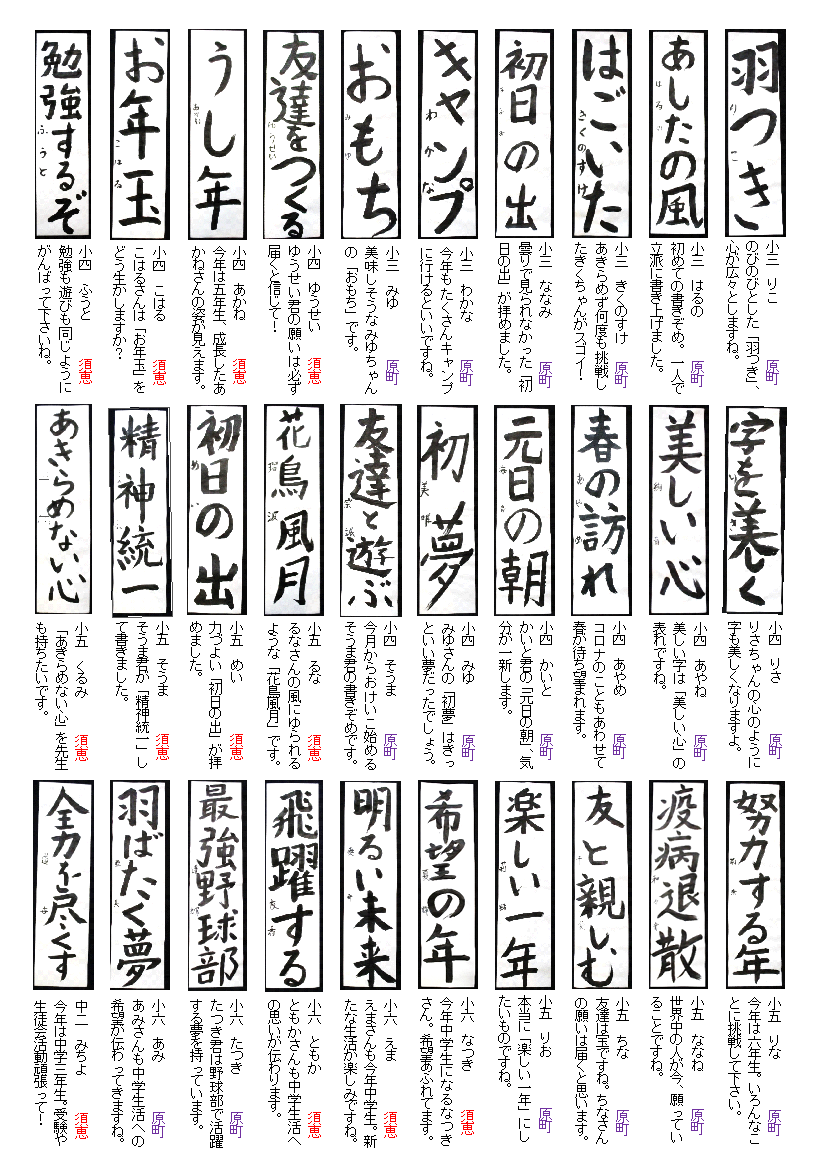 羽つき
りこ
小三 りこ 原町
のびのびとした「羽つき」、
心が広々としますね。
あしたの風
はるの
小三 はるの 原町
初めての書きぞめ。一人で
立派に書き上げました。
はごいた
きくのすけ
小三 きくのすけ 原町
あきらめず何度も挑戦し
たきくちゃんがスゴイ！
初日の出
小三 ななみ 原町
曇りで見られなかった「初
日の出」が拝めました。
キャンプ
わかな
小三 わかな 原町
今年もたくさんキャンプ
に行けるといいですね。
おもち
みゆ
小三 みゆ 原町
美味しそうなみゆちゃん
の「おもち」です。
友達をつくる
ゆうせい
小四 ゆうせい 須恵
ゆうせい君の願いは必ず
届くと信じて！
うし年
あかね
小四 あかね 須恵
今年は五年生、成長したあ
かねさんの姿が見えます。
お年玉
こはる
小四 こはる 須恵
こはるさんは「お年玉」を
どう生かしますか？
勉強するぞ
ふうと
小四 ふうと 須恵
勉強も遊びも同じように
がんばって下さいね。
字を美しく
小四 りさ 原町
りさちゃんの心のように
字も美しくなりますよ。
美しい心
小四 あやね 原町
美しい字は「美しい心」の
表れですね。
春の訪れ
あやめ
小四 あやめ 原町
コロナのこともあわせて
春が待ち望まれます。
元日の朝
小四 かいと 原町
かいと君の「元日の朝」、気
分が一新します。
初夢
美唯
小四 みゆ 原町
みゆさんの「初夢」はきっ
といい夢だったでしょう。
友達と遊ぶ
小四 そうま 原町
今月からおけいこ始める
そうま君の書きぞめです。
花鳥風月
小五 るな 須恵
るなさんの風にゆられる
ような「花鳥風月」です。
初日の出
めい
小五 めい 須恵
力づよい「初日の出」が拝
めました。
精神統一
小五 そうま 須恵
そうま君が「精神統一」し
て書きました。
あきらめない心
小五 くるみ 須恵
「あきらめない心」を先生
も持ちたいです。
努力する年
小五 りな 原町
今年は六年生。いろんなこ
とに挑戦して下さい。
疫病退散
小五 ななね 原町
世界中の人が今、願ってい
ることですね。
友と親しむ
小五 ちな 原町
友達は宝ですね。ちなさん
の願いは届くと思います。
楽しい一年
小五 りお 原町
本当に「楽しい一年」にし
たいものですね。
希望の年
小六 なつき 須恵
今年中学生になるなつき
さん。希望あふれてます。
明るい未来
小六 えま 須恵
えまさんも今年中学生。新
たな生活が楽しみですね。
飛躍する
小六 ともか 須恵
ともかさんも中学生活へ
の思いが伝わります。
最強野球部
小六 たつき 原町
たつき君は野球部で活躍
する夢を持っています。
羽ばたく夢
小六 あみ 原町
あみさんも中学生活への
希望が伝わってきますね。
全力を尽くす
中二 みちよ 須恵
今年は中学三年生。受験や
生徒会活動頑張って！